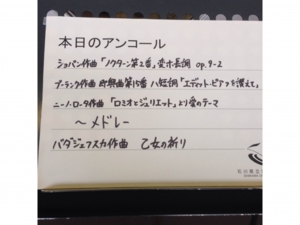 本日のアンコール
ショパン作曲「ノクターン第2番」変ホ長調 op.9-2
プーランク作曲 即興曲第15番 ハ短調「エディット・ピアフを讃えて」
ニーノ・ロータ作曲「ロミオとジュリエット」より愛のテーマ
～メドレー
バダジェフスカ作曲 乙女の祈り